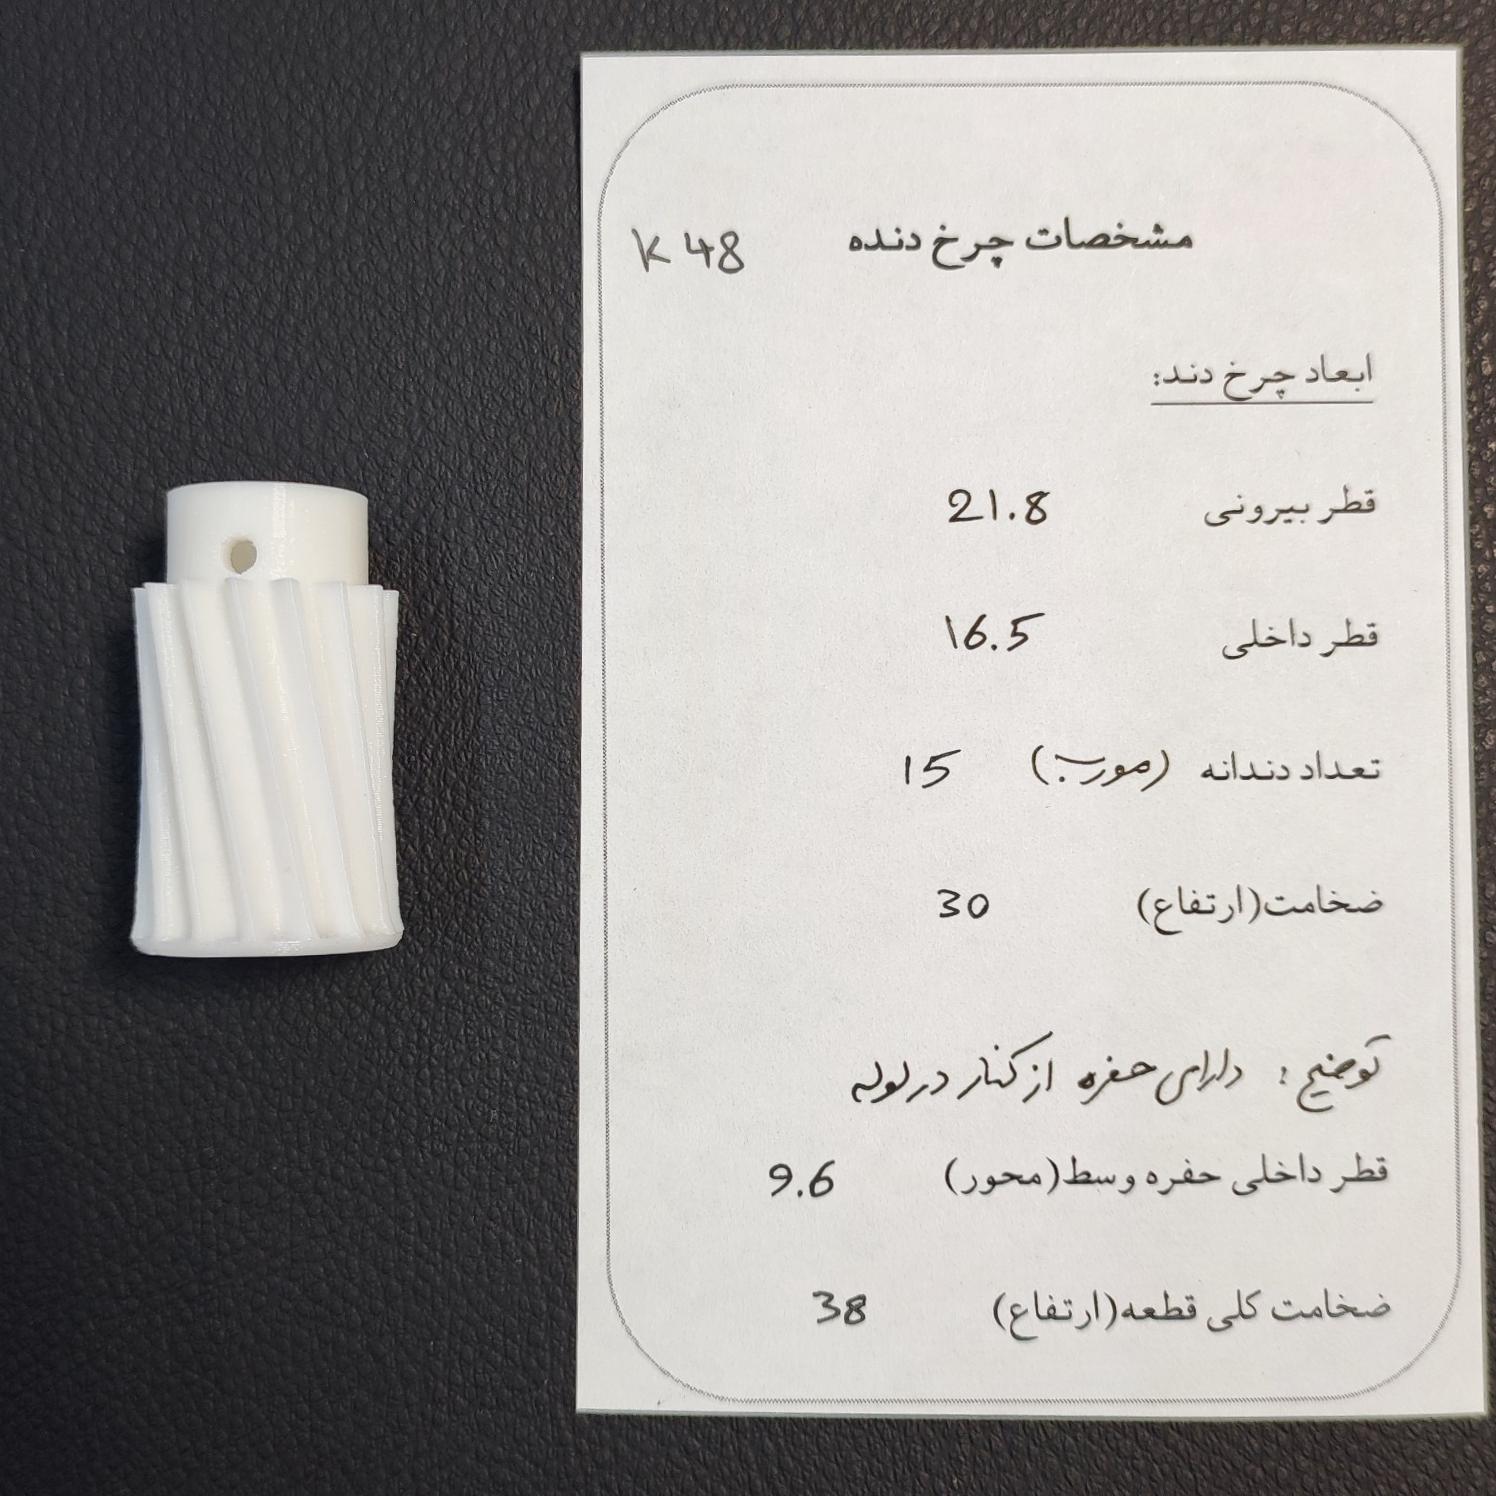 مشخصات چرخ دنده K 48
ابعاد چرخ دند:
قطر بیرونی 21.8
قطر داخلی 16.5
تعداد دندانه (مورب) 15
ضخامت(ارتفاع) 30
توضیح : دارای حفره از کنار در لوله
قطر داخلی حفره وسط(محور) 9.6
ضخامت کلی قطعه(ارتفاع) 38